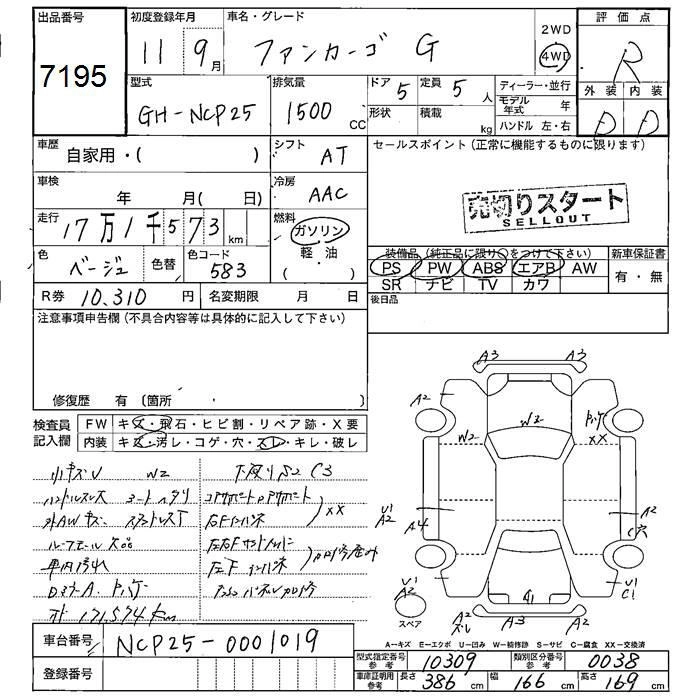 出品番号
7195
初度登録年月
11 9月
車名・グレード
ファンカーゴ G
2WD
4WD
評価点
R
外装 内装
D D
型式
GH-NCP25
排気量
1500 CC
ドア 5
定員 5 人
形状
積載 kg
ディーラー・並行
モデル年式 年
ハンドル 左・右
車歴
自家用・( )
シフト
AT
セールスポイント(正常に機能するものに限ります)
売切りスタート
SELLOUT
車検
年 月( 日)
冷房
AAC
走行
17万1千573 km
燃料
ガソリン
軽・油
( )
色
ベージュ
色替
色コード
583
装備品(純正品に限り○をつけて下さい)
PS PW ABS エアB AW
SR ナビ TV カワ
新車保証書
有・無
R券 10,310 円
名変期限 月 日
後日品
注意事項申告欄(不具合内容等は具体的に記入して下さい)
修復歴 有(箇所 )
検査員記入欄
FW キズ・飛石・ヒビ割・リペア跡・X要
内装 キズ・汚レ・コゲ・穴・スレ・キレ・破レ
小キズU W2
下廻りS2 C3
ハンドルスレ シートヘタリ
コアサポートロアサポート
XX
外AWキズ スタッドレスT
右Fインパネ
左右Fサイドメンバー
車内汚れ
左Fインパネ
DミラーA
171,574km
A3 A3
A2
W2
W2
XX
U1
A2
A4
A2
C穴
U1
A2
スペア
A2
スレ
A3
A2
U1
C1
A-キズ E-エクボ U-凹み W-補修跡 S-サビ C-腐食 XX-交換済
車台番号 NCP25-0001019
登録番号
型式指定番号 参考 10309
類別区分番号 参考 0038
車庫証明用 参考
長さ 386 cm
幅 166 cm
高さ 169 cm